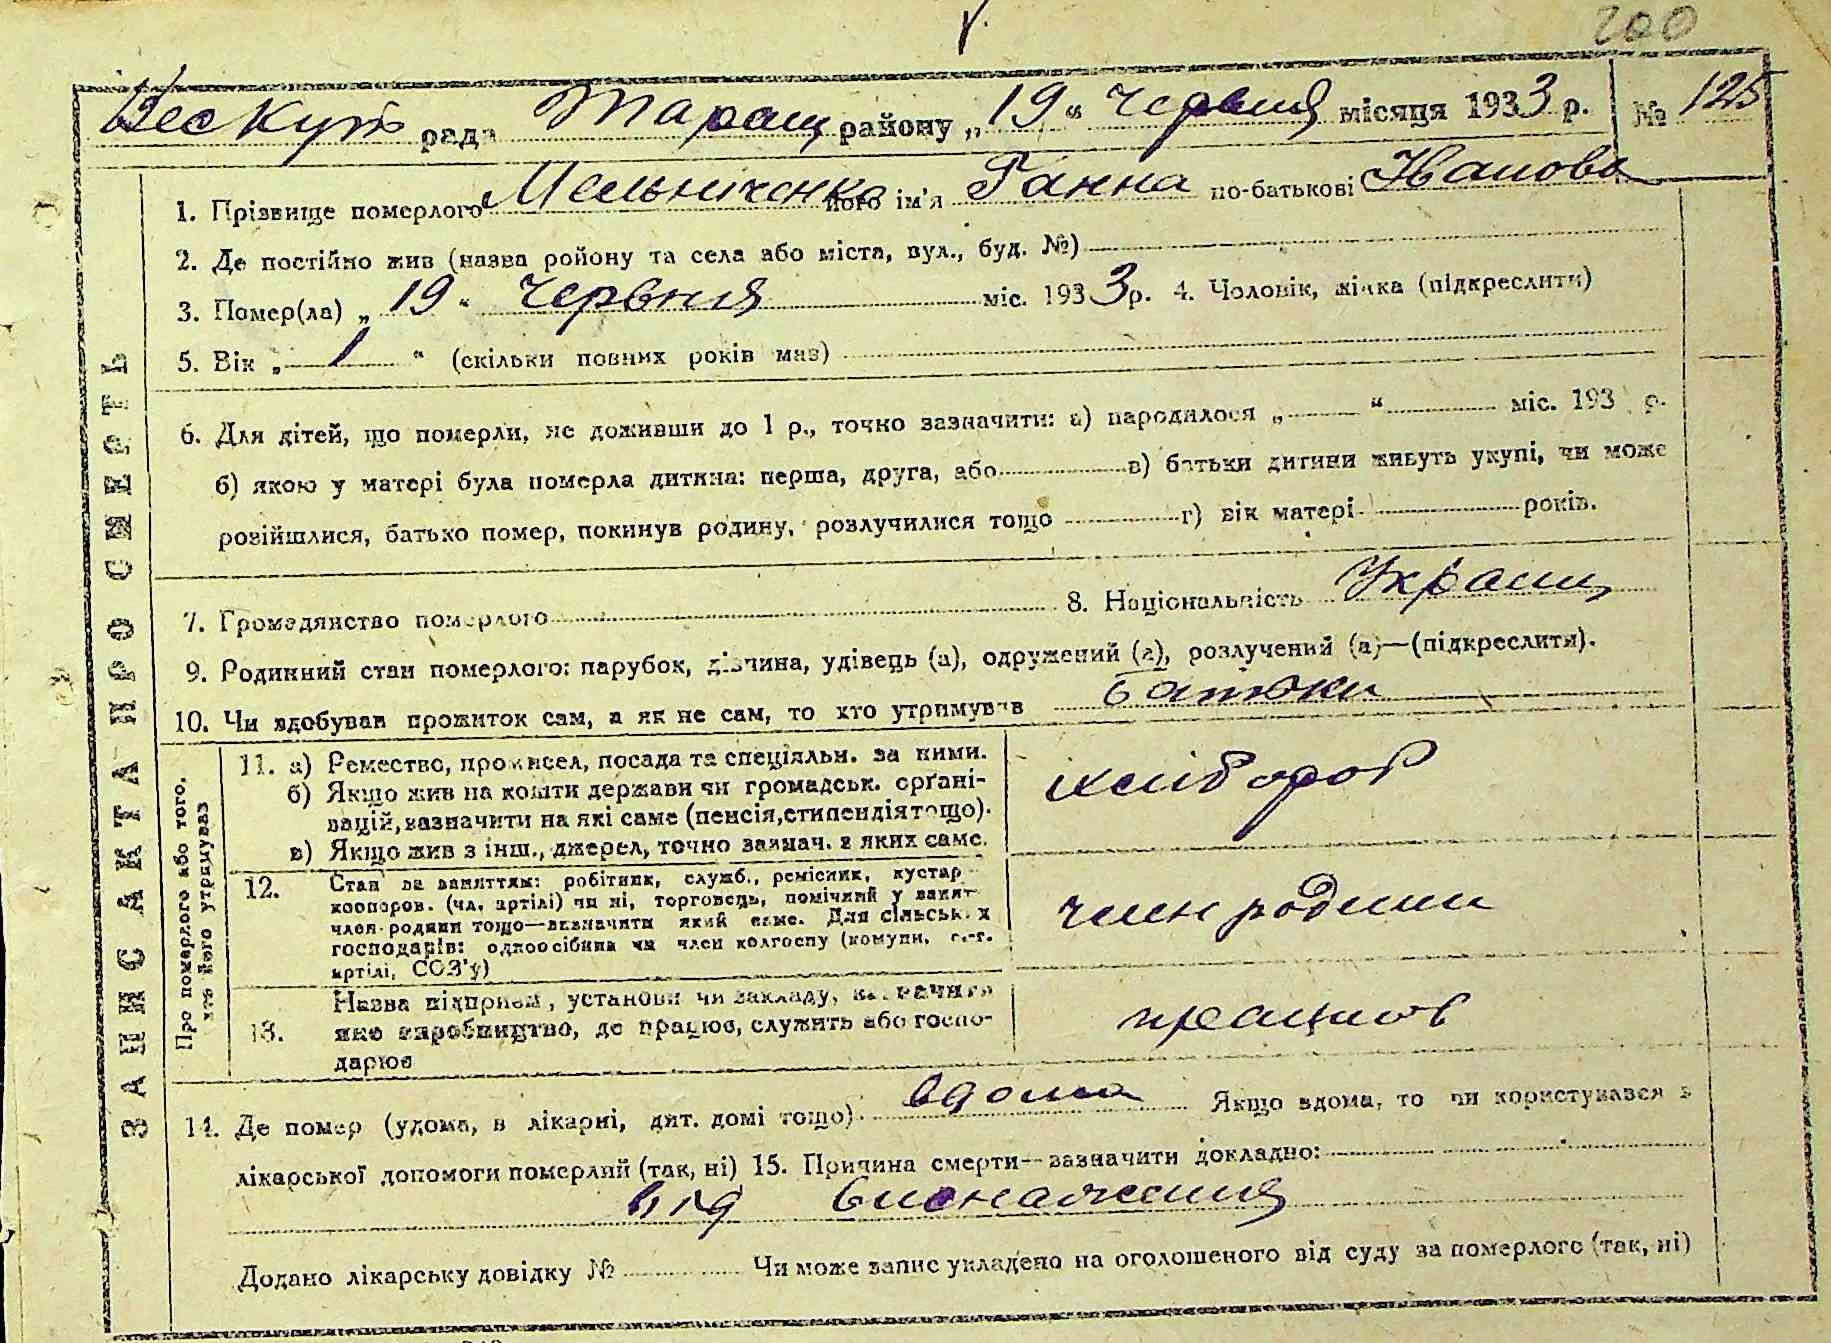 200
Вескут рада Таращ району „19“ Червня місяця 1933 р. № 125
ЗАПИС АКТА ПРО СМЕРТЬ
1. Прізвище померлого Мельніченко його ім'я Ганна по-батькові Іванова
2. Де постійно жив (назва ройону та села або міста, вул., буд. №)
3. Помер(ла) „19“ Червня міс. 1933 р. 4. Чоловік, жінка (підкреслити)
5. Вік „1“ (скільки повних років мав)
6. Для дітей, що померли, не доживши до 1 р., точно зазначити: а) народилося „ “ міс. 193 р.
б) якою у матері була померла дитина: перша, друга, або в) батьки дитини живуть укупі, чи може
розійшлися, батько помер, покинув родину, розлучилися тощо г) вік матері років.
7. Громадянство померлого 8. Національність Україн,
9. Родинний стан померлого: парубок, дівчина, удівець (а), одружений (а), розлучений (а)—(підкреслити).
10. Чи здобував прожиток сам, а як не сам, то хто утримував батюки
Про померлого або того, хто його утримував
11. а) Ремество, промисел, посада та спеціяльн. за ними.
б) Якщо жив на кошти держави чи громадськ. орґані-
зацій, зазначити на які саме (пенсія, стипендія тощо).
в) Якщо жив з інш., джерел, точно зазнач. з яких саме.
хлібороб
12. Стан за заняттям: робітник, служб., ремісник, кустар
кооперов. (чл. артілі) чи ні, торговець, помічний у занят
член родини тощо—зазначити який саме. Для сільських
господарів: одноосібник чи член колгоспу (комуни, с.-г.
артілі, СОЗ'у)
член родини
13. Назва підприєм., установи чи закладу, зазначити
яке виробництво, де працює, служить або госпо-
дарює
працює
14. Де помер (удома, в лікарні, дит. домі тощо). вдома Якщо вдома, то чи користувався з
лікарської допомоги померлий (так, ні) 15. Причина смерти—зазначити докладно:
від виснаження
Додано лікарську довідку № Чи може запис укладено на оголошеного від суду за померлого (так, ні)